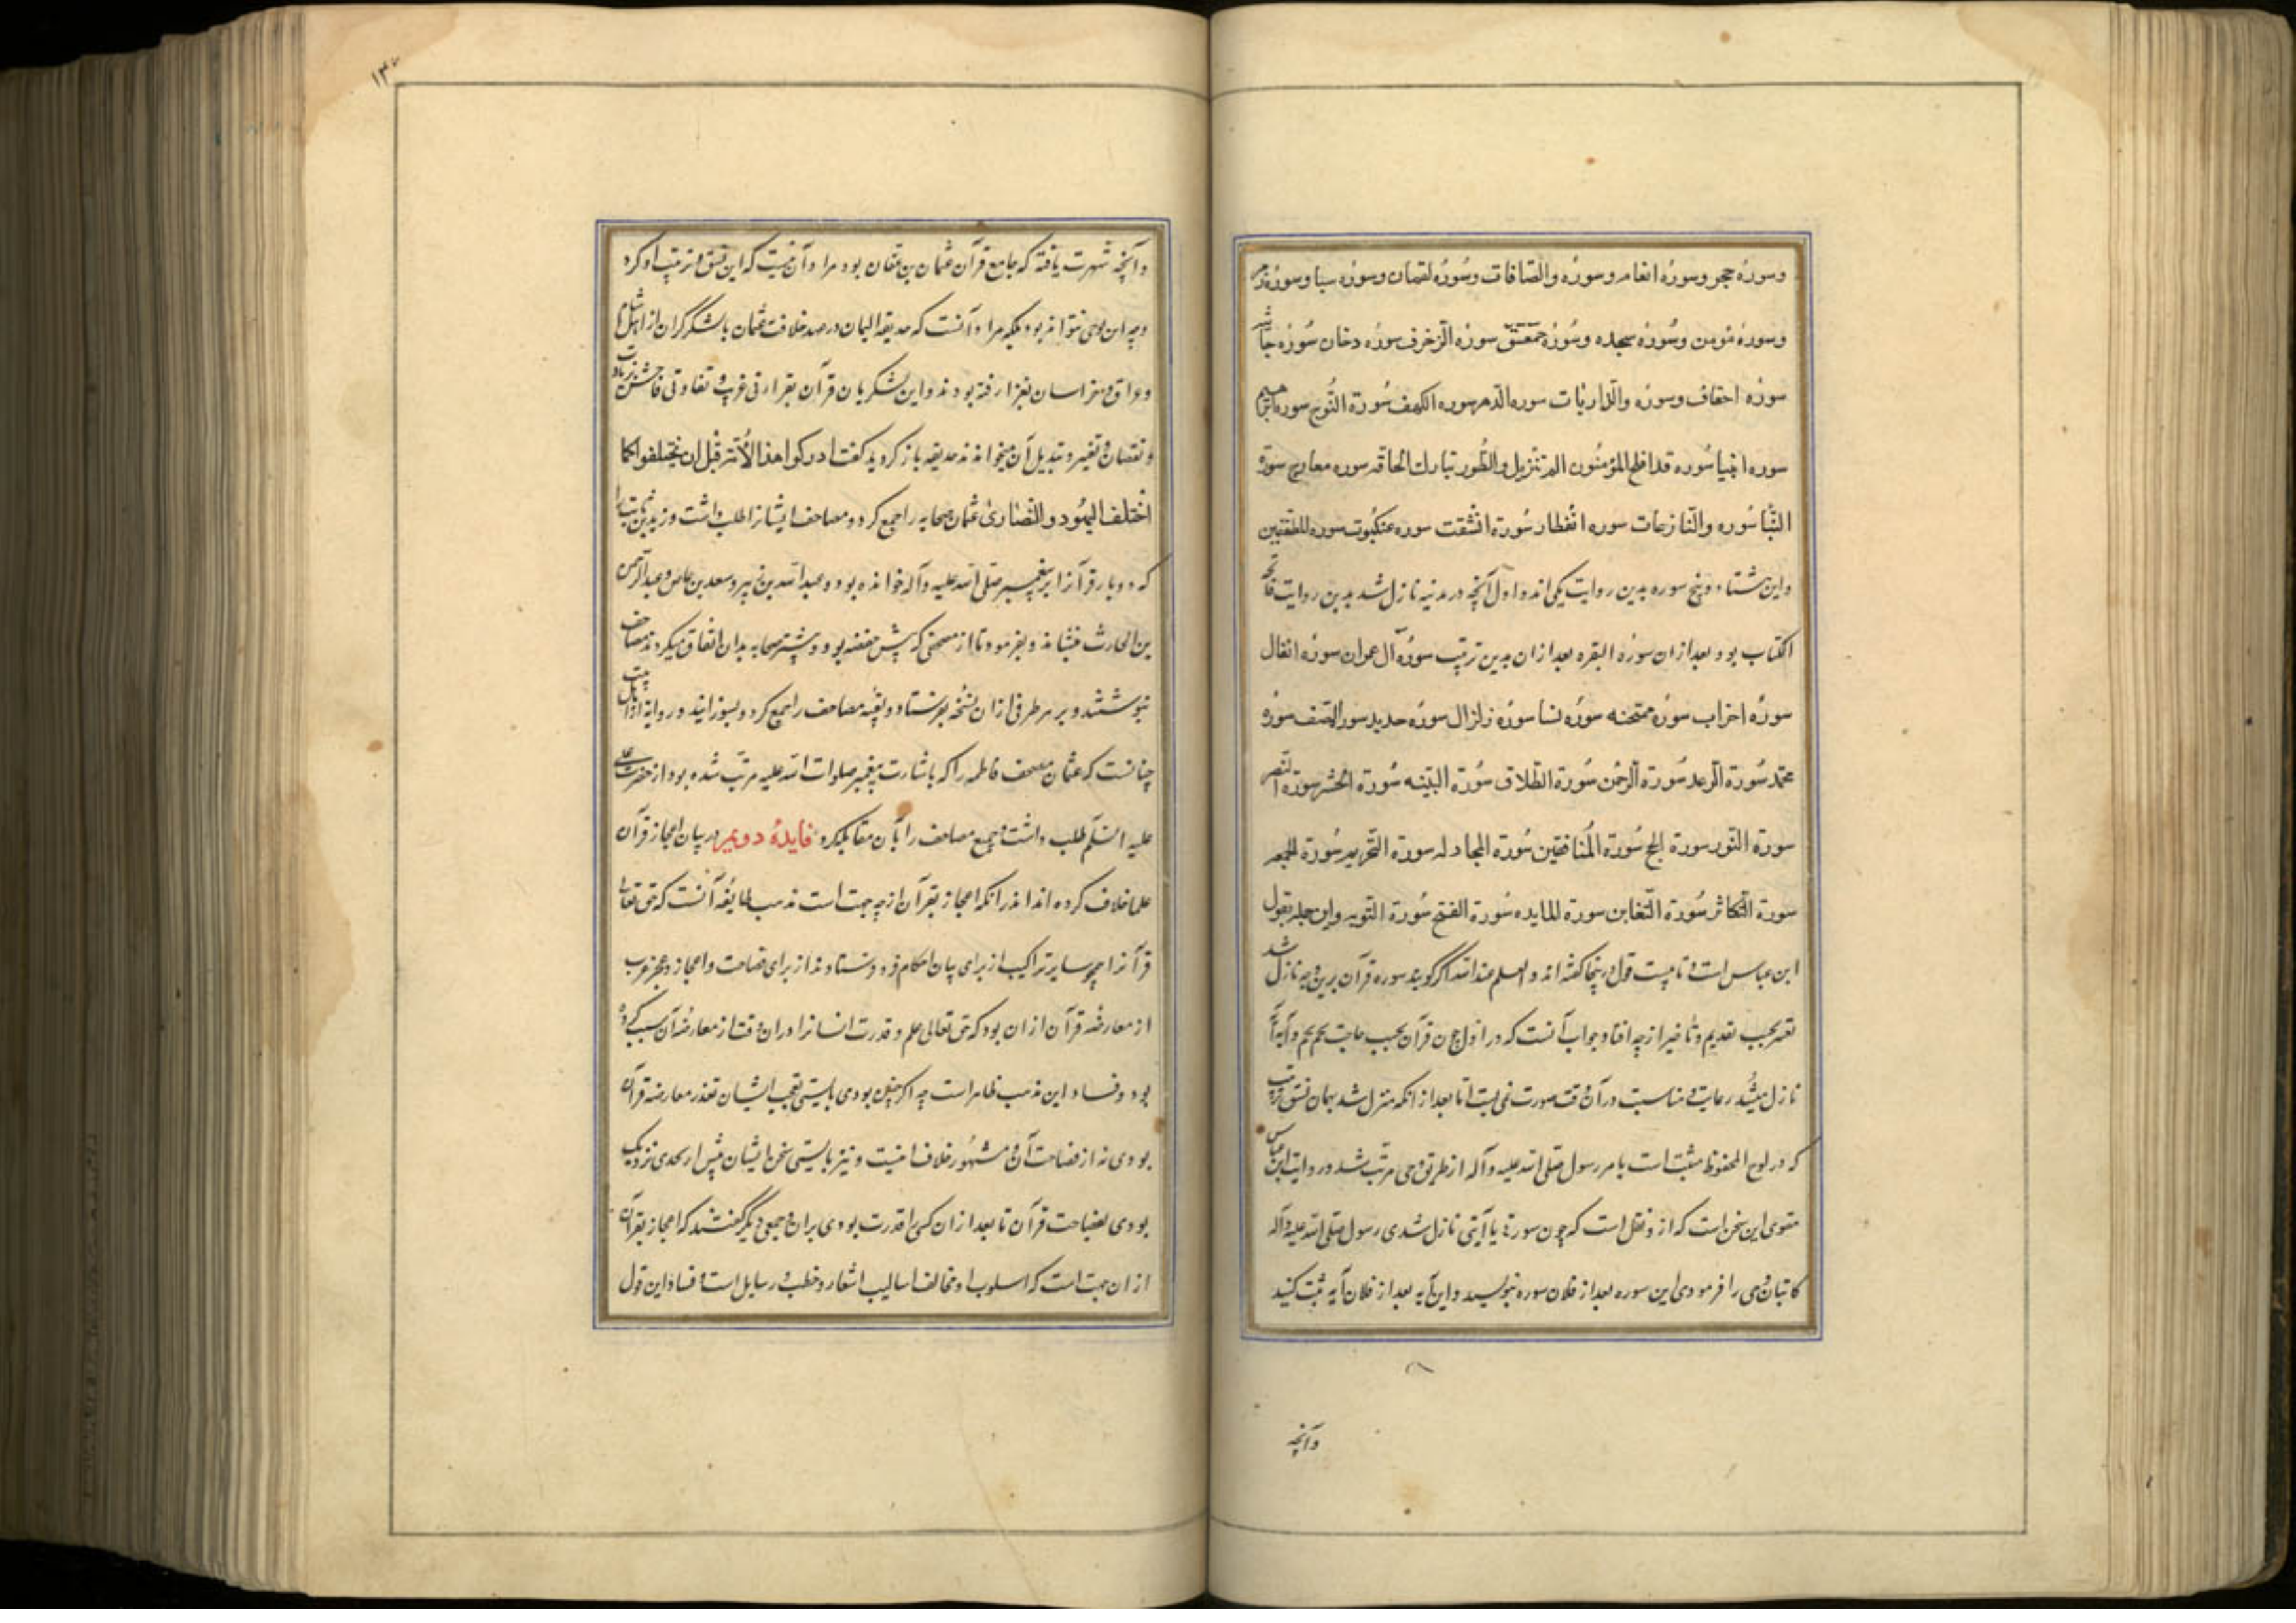 وسورهٔ حجر وسورهٔ انعام وسورهٔ والصّافات وسُورهٔ لقمان وسورهٔ سبا وسورهٔ زمر
وسورهٔ مؤمن وسُورهٔ سجده وسُورهٔ حمعسق سورهٔ الزخرف سورهٔ دخان سُورهٔ جاثیه
سورهٔ احقاف وسورهٔ والذّاریات سوره الدهر سوره الکهف سُورة النُوح سوره ابراهیم
سوره انبیا سُوره قد افلح المؤمنُون الم تنزیل والطُور تبارك الحاقه سوره معارج سورة
النّبا سُوره والنّازعات سوره انفطار سُورة انشقت سوره عنکبُوت سوره للمطففین
واین هشتاد و پنج سوره بدین روایت مکی اند و اول آنچه در مدینه نازل شد بدین روایت فاتحه
الکتاب بود و بعد ازان سورهٔ البقره بعد ازان بدین ترتیب سورهٔ آل عمران سورهٔ انفال
سورهٔ احزاب سورهٔ ممتحنه سورهٔ نسا سورهٔ زلزال سورهٔ حدید سورة الصف سورهٔ
محمّد سُورة الرعد سُورة الرحمن سُورة الطلاق سُورة البیّنه سُورة الحشر سورة النصر
سورة النّور سورة الحج سُورة المُنافقین سُورة المجادله سورة التحریم سُورة الجمعه
سورة التکاثر سُورة التغابن سورة المایده سُورة الفتح سُورة التوبه و این جمله بقول
ابن عباس است و تا بیست قول درینجا گفته اند و العلم عند الله اگر گویند سوره قرآن برین وجه نازل شد
بحسب تقدیم و تأخیر از چه افتاد جواب آنست که در اول چون قرآن بحسب حاجت نجم نجم و آیه آیه
نازل میشُد رعایت مناسبت در آن وقت صورت نمی بست اما بعد از انکه منزل شد بهمان نسق ترتیب
که در لوح المحفوظ مثبت است بامر رسول صلی الله علیه و آله از طریق وحی مرتب شد و روایت ابن عباس
مقوی این سخن است که ازو نقل است که چون سورتی یا آیتی نازل شدی رسول صلی الله علیه وآله
کاتبان وحی را فرمودی این سوره بعد از فلان سوره بنویسید و این آیه بعد از فلان آیه ثبت کنید
وآنچه
۱۳۷
و آنچه شهرت یافته که جامع قرآن عثمان بن عفان بود مراد آن نیست که این نسق و ترتیب او کرد
و چه این بوحی نتواند بود بلکه مراد آنست که حدیقه الیمان در عهد خلافت عثمان با لشکر گران از اهل شام
و عراق و خراسان بغزا رفته بودند و این لشکریان قرآن بقرارتی غریب و تفاوتی فاحش زیادت
و نقصان و تغییر و تبدیل آن میخواندند حدیقه باز گردید گفت ادرکوا هذا الأُمّة قبل ان یختلفوا کما
اختلف الیهُود والنّصٰاری عثمان صحابه را جمع کرد و مصاحف ایشانرا طلب داشت و زید بن ثابت را
که دو بار قرآنرا بر پیغمبر صلی الله علیه وآله خوانده بود و عبدالله بن زبیر و سعد بن عاص و عبدالرحمن
بن الحارث بنشاند و بفرمود تا از مصحفی که پیش حفصه بود و بیشتر صحابه بدان اتفاق میکردند مصاحف
نبوشتند و بر هر طرفی ازان نسُخه بفرستاد و بقیّه مصاحف را جمع کرد و بسوزانید و روایة اهل بیت
چنانست که عثمان مصحف فاطمه را که باشارت پیغمبر صلوات الله علیه مرتب شده بود از حضرت علی
علیه السّلم طلب داشت و جمیع مصاحف را بآن مقابله کرد فایدهٔ دویم در بیان اعجاز قرآن
علما خلاف کرده اند اندرانکه اعجاز بقرآن از چه جهت است مذهب طایفه آنست که حق تعالی
قرآنرا همچو سایر تراکیب از برای بیان احکام فرو فرستاد نه از برای فصاحت و اعجاز و عجز عرب
از معارضهٔ قرآن ازان بود که حق تعالی علم و قدرت انسانرا دران وقت از معارضهٔ آن سلب کرده
بود و فساد این مذهب ظاهر است چه اگر چنین بودی بایستی تعجب ایشان تعذر معارضه قرآن
بودی نه از فصاحت آن و مشهُور خلاف اینست و نیز بایستی سخن ایشان پیش از تحدی نزدیک
بودی بفصاحت قرآن تا بعد ازان کسی را قدرت بودی بران و جمعی دیگر گفتند که اعجاز بقرآن
ازان جهت است که اسلوب او مخالف اسالیب اشعار و خطب و رسایل است و فساد این قول